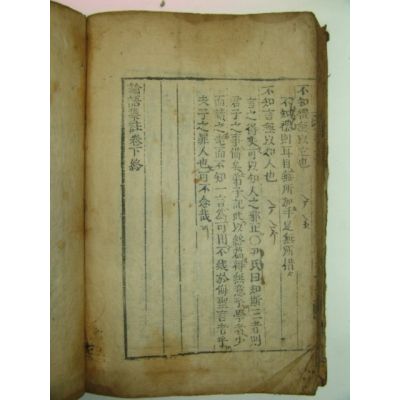 不知禮無以立也
不知禮則耳目無所加手足無所措
不知言無以知人也
言之得失可以知人之邪正○尹氏曰知斯三者則
君子之事備矣弟子記此以終篇得無意乎學者少
而讀之老而不知一言為可用不幾於侮聖言者乎
夫子之罪人也可不念哉
論語集註卷下終